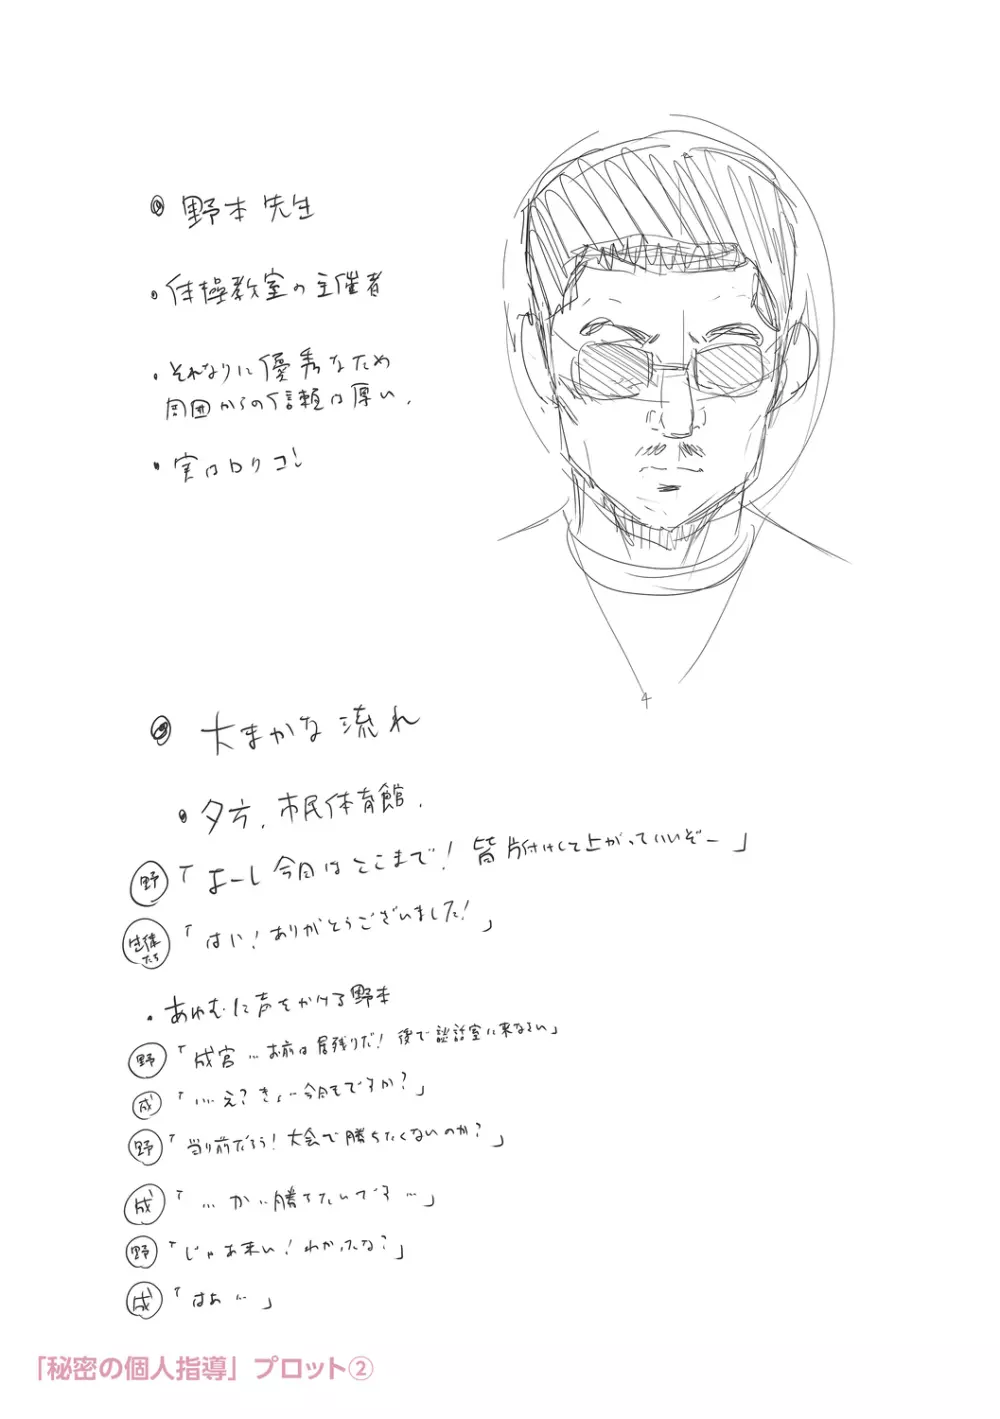 野本先生
・体操教室の主催者
・それなりに優秀なため
周囲からの信頼は厚い.
・実はロリコン
大まかな流れ
・夕方.市民体育館.
野「よーし今日はここまで!皆片付けして上がっていいぞー」
生徒たち「はい!ありがとうございました!」
・あゆむに声をかける野本
野「成宮…お前は居残りだ!後で談話室に来なさい」
成「…え?きょ…今日もですか?」
野「当り前だろう!大会で勝ちたくないのか?」
成「…か…勝ちたいです…」
野「じゃあ来い!わかったな?」
成「はあ…」
「秘密の個人指導」プロット②